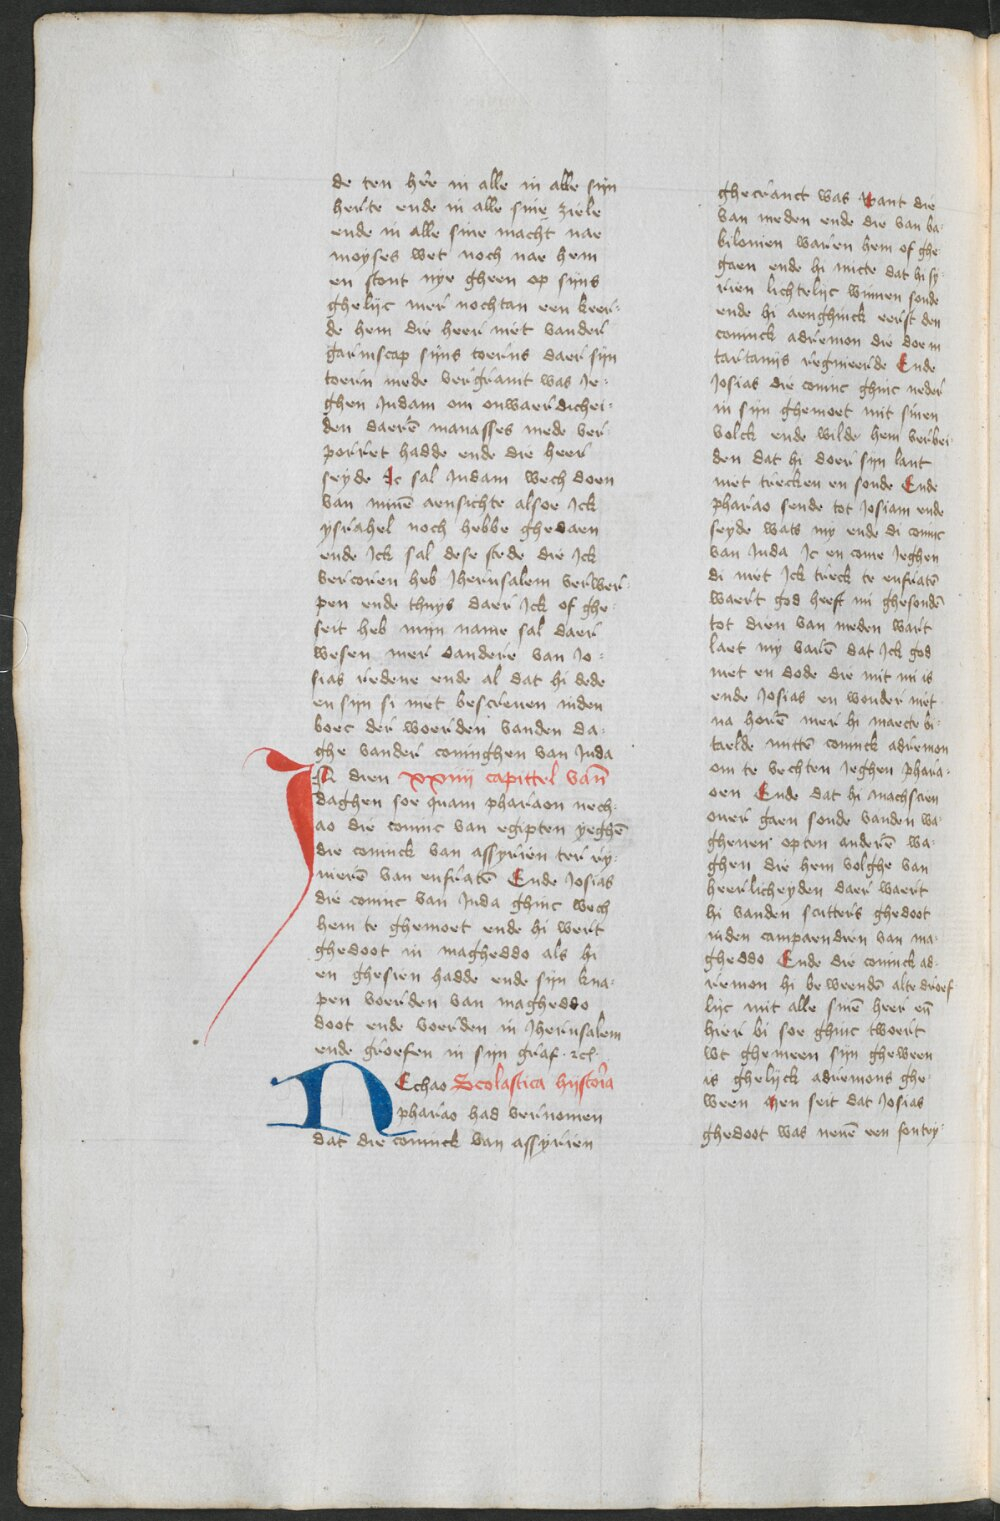 de ten hēre in alle in alle sijn
herte ende in alle sine ziele
ende in alle sine macht nae
moyses wet noch nae hem
en stont nye gheen op sijns
ghelijc mer nochtan een keer-
de hem die heer niet vander
gramscap sijns toerns daer sijn
toern mede vergramt was Je-
ghen Judam om onwaerdichei-
den daerē manasses mede ver-
porret hadde ende die heer
seyde Ic sal Judam wech doen
van minē aensichte alsoe Ick
ysrahel noch hebbe ghedaen
ende Ick sal dese stede die Ick
vercoren heb Jherusalem verwer-
pen ende thuys daer Ick of ghe-
seit heb mijn name sal daer
wesen mer dandere van Jo-
sias redene ende al dat hi dede
en sijn si niet bescreuen inden
boec der woerden vanden da-
ghe vander coninghen van Juda
IN dien xxiiii capittel vañ
daghen soe quam pharaon nech-
ao die coninc van egipten yeghē
die coninck van assyrien ter ry-
uierē van eufratē Ende Josias
die coninc van Juda ghinc wech
hem te ghemoet ende hi wert
ghedoot in magheddo als hi
en ghesien hadde ende sijn kna-
pen voerden van magheddo
doot ende voerden in Jherusalem
ende groefen in sijn graf · &c̄ ·
NEchao Scolastica hystoria
pharao had vernomen
dat die coninck van assyrien
ghecranct was want die
van meden ende die van ba-
bilonien waren hem of ghe
gaen ende hi micte dat hi sy-
rien lichtelijc winnen soude
ende hi aenghinck eerst den
coninck adremon die doem
tartanijs regnieerde Ende
Josias die coninc ghinc neder
in sijn ghemoet mit sinen
volck ende wilde hem verbei-
den dat hi doer sijn lant
niet trecken en soude Ende
pharao sende tot Josiam ende
seyde wats my ende di coninc
van Juda Ic en come Jeghen
di niet Ick treck te eufratē
waert god heeft mi ghesondē
tot dien van meden wart
laet my varē dat Ick god
niet en dode die mit mi is
ende Josias en wonder niet
na horē mer hi maecte bi-
taelde mittē coninck adremon
om te vechten Jeghen phara-
oen Ende dat hi machscien
ouer gaen soude vanden wa-
ghenen opten anderē wa-
ghen die hem volghe van
heerlicheyden daer waert
hi vanden scutters ghedoot
inden campaendien van ma-
gheddo Ende die coninck ad-
remon hi beweendē alte droef
lijc mit alle sinē heer eñ
hier bi soe ghinc twoert
wt ghemeen sijn gheween
is ghelijck adremons ghe-
ween Men seit dat Josias
ghedoot was neuē een fontey-